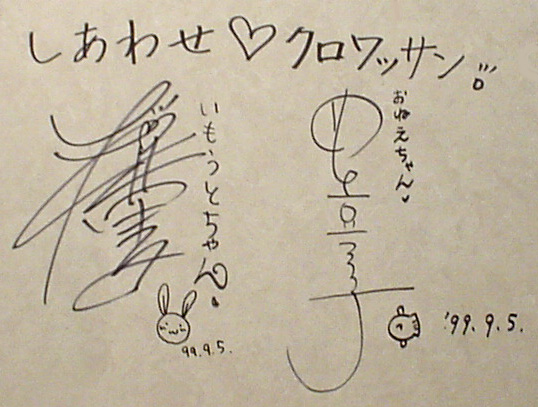 しあわせ♡クロワッサン
おねえちゃん
'99.9.5.
いもうとちゃん
99.9.5.